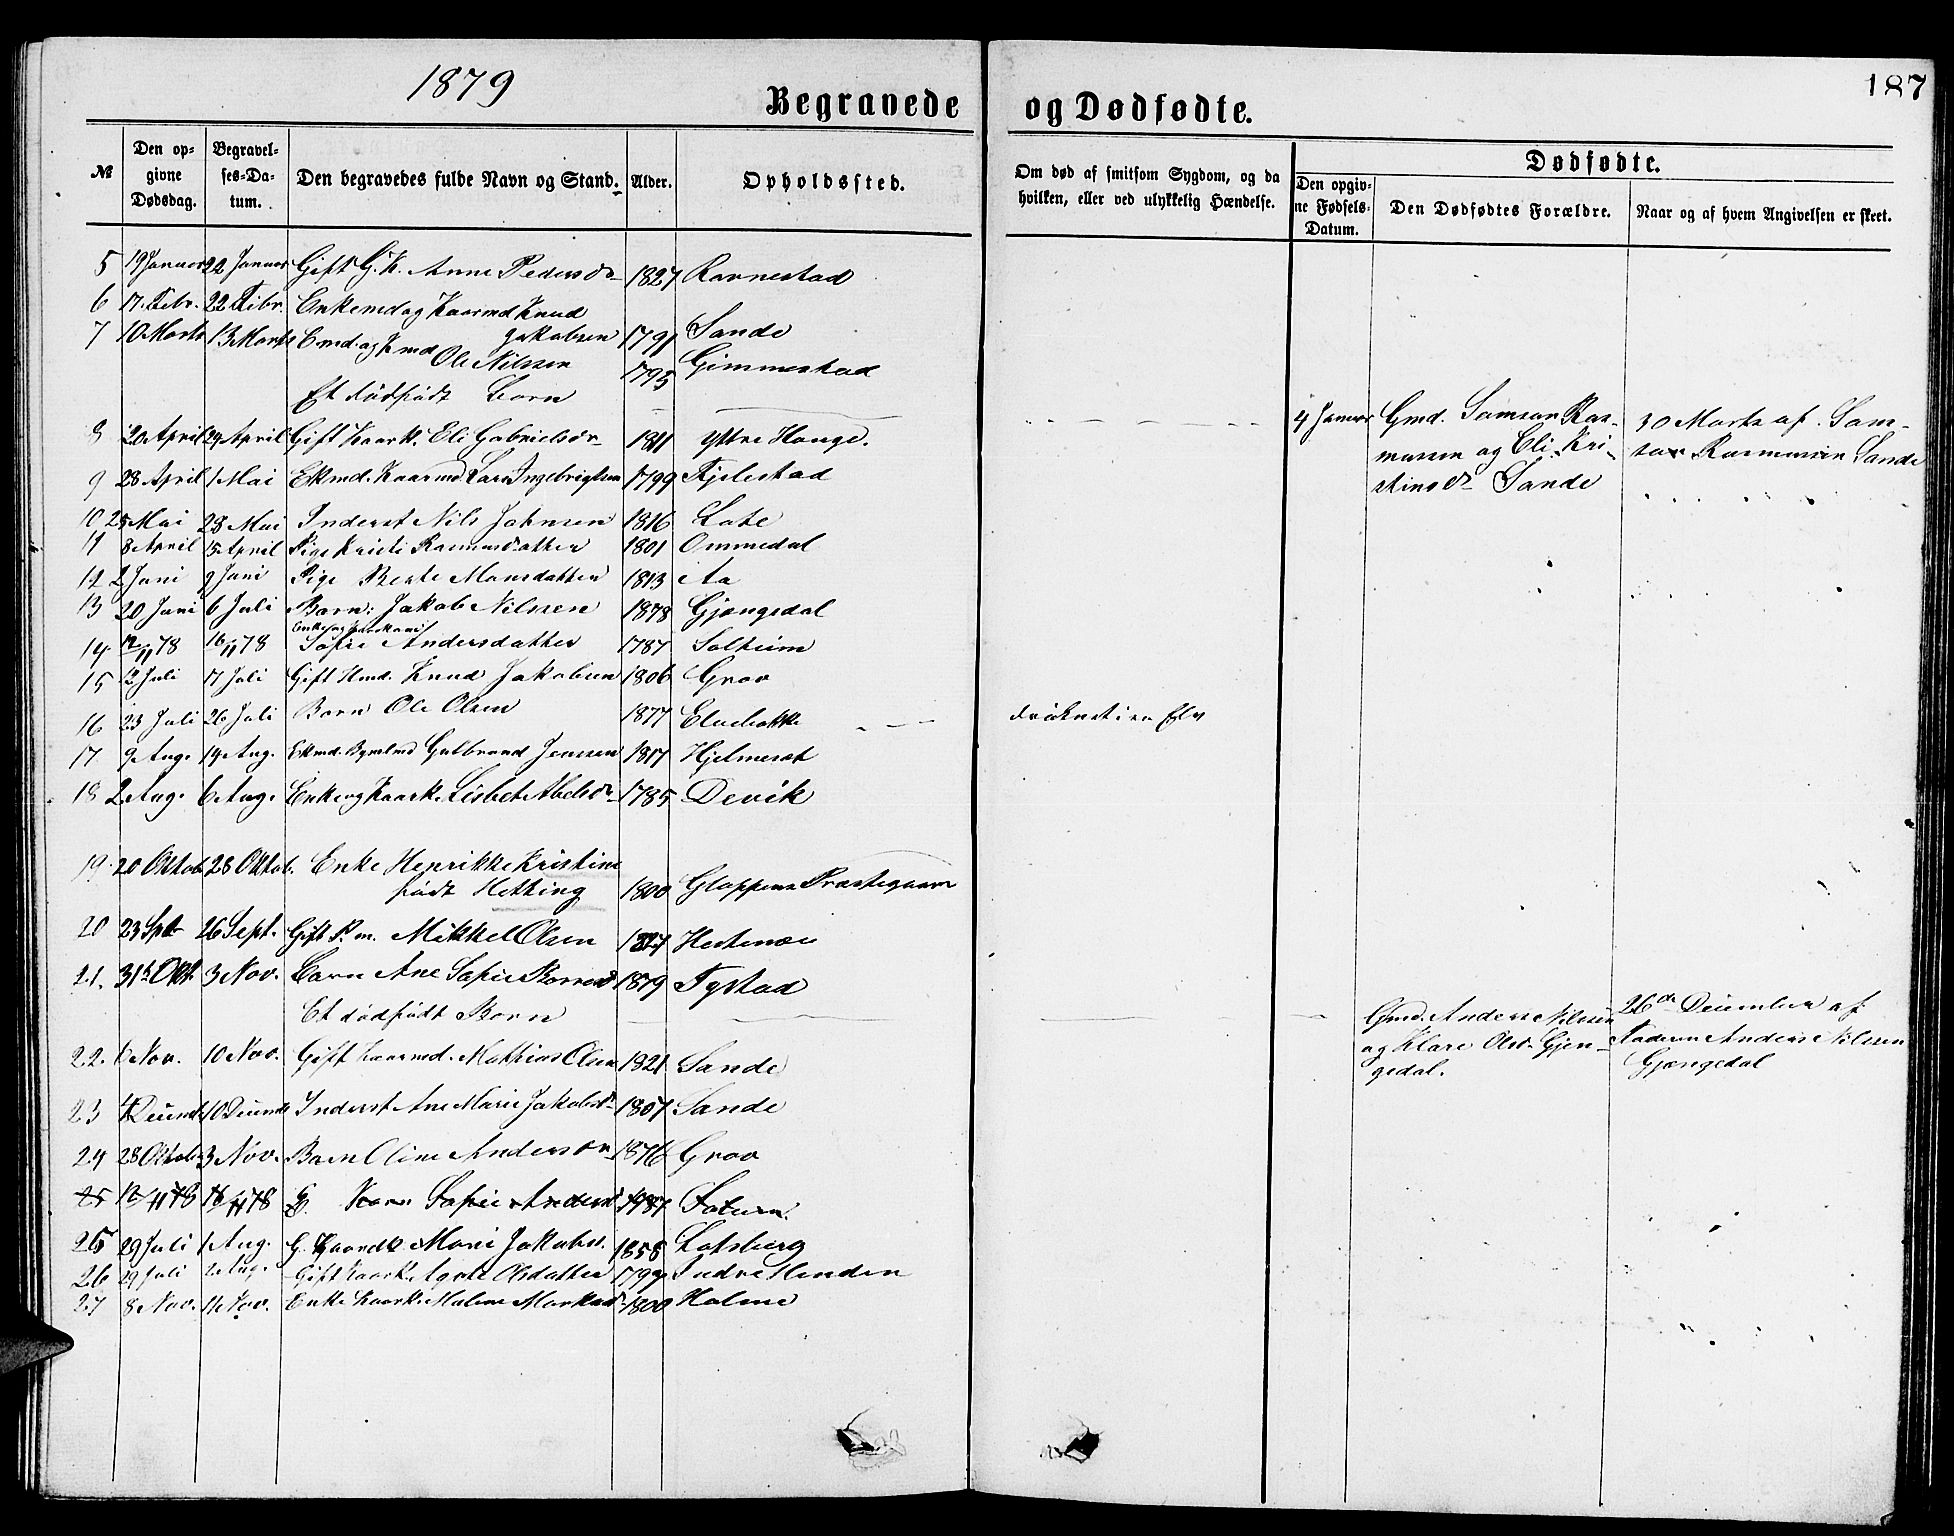 1879
Begravede og Dødfødte.
187
№
Den opgivne Dødsdag.
Begravelses-Datum.
Den begravedes fulde Navn og Stand.
Alder.
Opholdssted.
Om død af smitsom Sygdom, og da hvilken, eller ved ulykkelig Hændelse.
Dødfødte.
Den opgivne Fødsels-Datum.
Den Dødfødtes Forældre.
Naar og af hvem Angivelsen er skeet.
5 19 Januar 22 Januar Gift G. K. Anne Pedersdr 1827 Ravnestad
6 17. Febr. 22 Febr. Enkemd og Kaarmd Knud
Jakobsen 1791 Sande
7 10 Marts 13 Marts E.md. og K.md
Ole Nilssen 1795 Gimmestad
Et dødfødt Barn
4 Januar Gmd. Samson Ras-
mussen og Eli Kri-
stensdr Sande
30 Marts af Sam-
son Rasmussen Sande
8 20 April 29 April Gift Kaark. Eli Gabrielsdr 1811 Yttre Hauge.
9 28 April 1 Mai Ekmd. Kaarmd Lars Ingebrigtsen 1799 Fjelestad
10 25 Mai 28 Mai Inderst Nils Johnsen 1816 Lote
11 8 April 15 April Pige Kristi Rasmusdatter 1801 Ommedal
12 2 Juni 9 Juni Pige Berte Monsdatter 1813 Aa
13 20 Juni 6 Juli Barn: Jakob Nilssen 1878 Gjengedal
14. 12/11 78 16/11 78 Sofie Andersdatter 1787 Solheim
15 12 Juli 17 Juli Gift Hmd. Knud Jakobsen 1806 Grov
16 23 Juli 26 Juli Barn Ole Olsen 1877 Elvebakke druknet i en Elv
17. 9 Aug. 14 Aug. Ekmd. Gulbrand Jenssen 1817 Hjelmeset
18 2 Aug. 6 Aug. Enke og Kaark. Lisbet Abelsdr 1785 Devik
19. 20 Oktob. 28 Oktob. Enke Henrikke Kristine
født Hetting 1800 Gloppens Præstegaard
20 23 Spt 26 Sept. Gift P. m. Mikkel Olsen Hestenæs
21. 31te Okt. 3 Nov. Barn Ane Sofie 1879 Tystad
Et dødfødt Barn
Gmd. Anders Nilssen
og Klare Olsdr Gjen-
gedal.
26de December af
Faderen Anders Nilssen
Gjængedal
22. 6 Nov. 10 Nov. Gift Kaarmd. Mathias Olsen 1821 Sande
23 10 Decemb Inderst Ane Marie Jakobsdr 1807 Sande
24 28 Oktob. 3 Nov. Barn Oline Andersdr 1876 Grov
25 12/11 78 16/11 78 Sofie Andersd 1787
25 29 Juli 1 Aug. G. Marie Jakobsd. 1858 Lotsberg
26 29 Juli 2 Aug. Gift Kaark. Agote Olsdatter 1799 Indre Henden
27 8 Nov. 11 Nov. Enke Kaark. Malene Markusd 1800 Holme